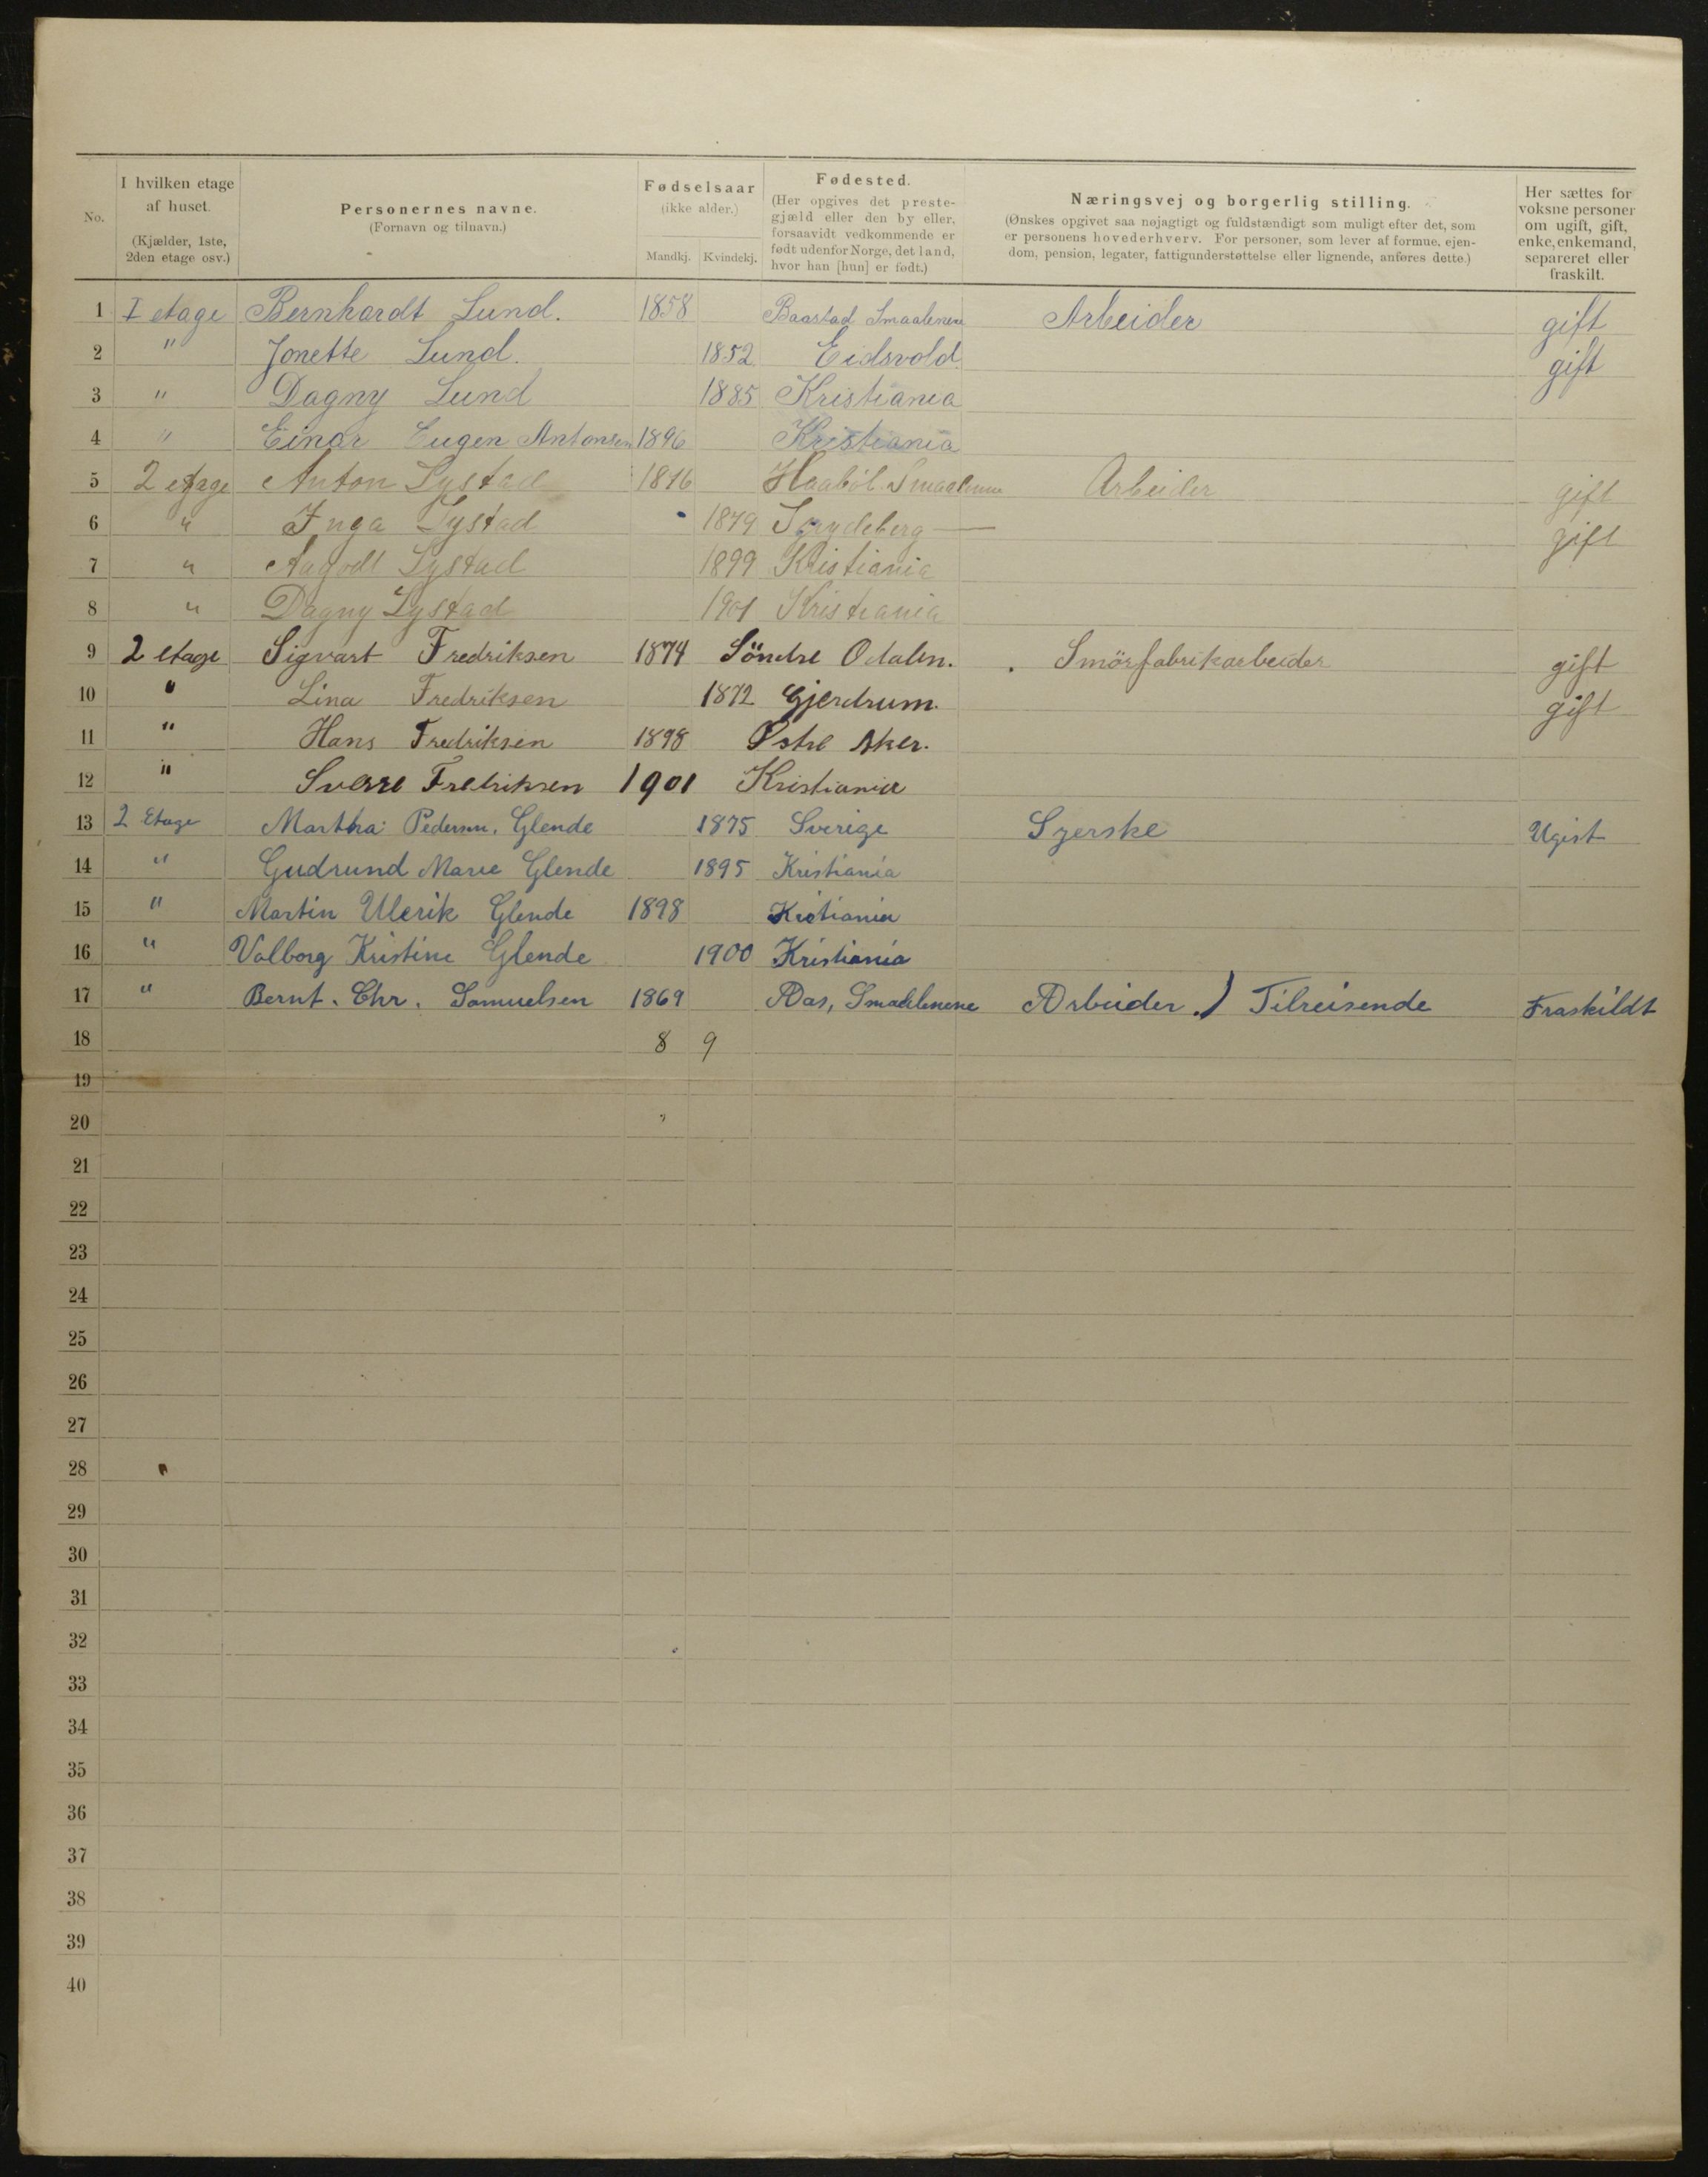 No.
I hvilken etage af huset. (Kjælder, 1ste, 2den etage osv.)
Personernes navne. (Fornavn og tilnavn.)
Fødselsaar (ikke alder.) Mandkj. Kvindekj.
Fødested. (Her opgives det prestegjæld eller den by eller, forsaavidt vedkommende er født udenfor Norge, det land, hvor han [hun] er født.)
Næringsvej og borgerlig stilling. (Ønskes opgivet saa nøjagtigt og fuldstændigt som muligt efter det, som er personens hovederhverv. For personer, som lever af formue, ejendom, pension, legater, fattigunderstøttelse eller lignende, anføres dette.)
Her sættes for voksne personer om ugift, gift, enke, enkemand, separeret eller fraskilt.
1 I etage Bernhardt Lund. 1858 Baastad Smaalenene Arbeider gift
2 " Jonette Lund. 1852 Eidsvold gift
3 " Dagny Lund 1885 Kristiania
4 " Einar Eugen Antonsen 1896 Kristiania
5 2 etage Anton Lystad 1876 Haaböl Smaalenene Arbeider gift
6 " Inga Lystad 1879 Spydeberg — gift
7 " Lystad 1899 Kristiania
8 " Dagny Lystad 1901 Kristiania
9 2 etage Sigvart Fredriksen 1874 Söndre Odalen. Smörfabrikarbeider gift
10 " Lina Fredriksen 1872 Gjerdrum. gift
11 " Hans Fredriksen 1898 Østre Aker.
12 " Sverre Fredriksen 1901 Kristiania
13 2 Etage Martha Pedersen. Glende 1875 Sverige Syerske Ugist
14 " Gudrund Marie Glende 1895 Kristiania
15 " Martin Ulerik Glende 1898 Kristiania
16 " Valborg Kristine Glende 1900 Kristiania
17 " Bernt. Chr. Samuelsen 1869 Aas, Smaalenene Arbeider.) Tilreisende Fraskildt
18 8 9
19
20
21
22
23
24
25
26
27
28
29
30
31
32
33
34
35
36
37
38
39
40